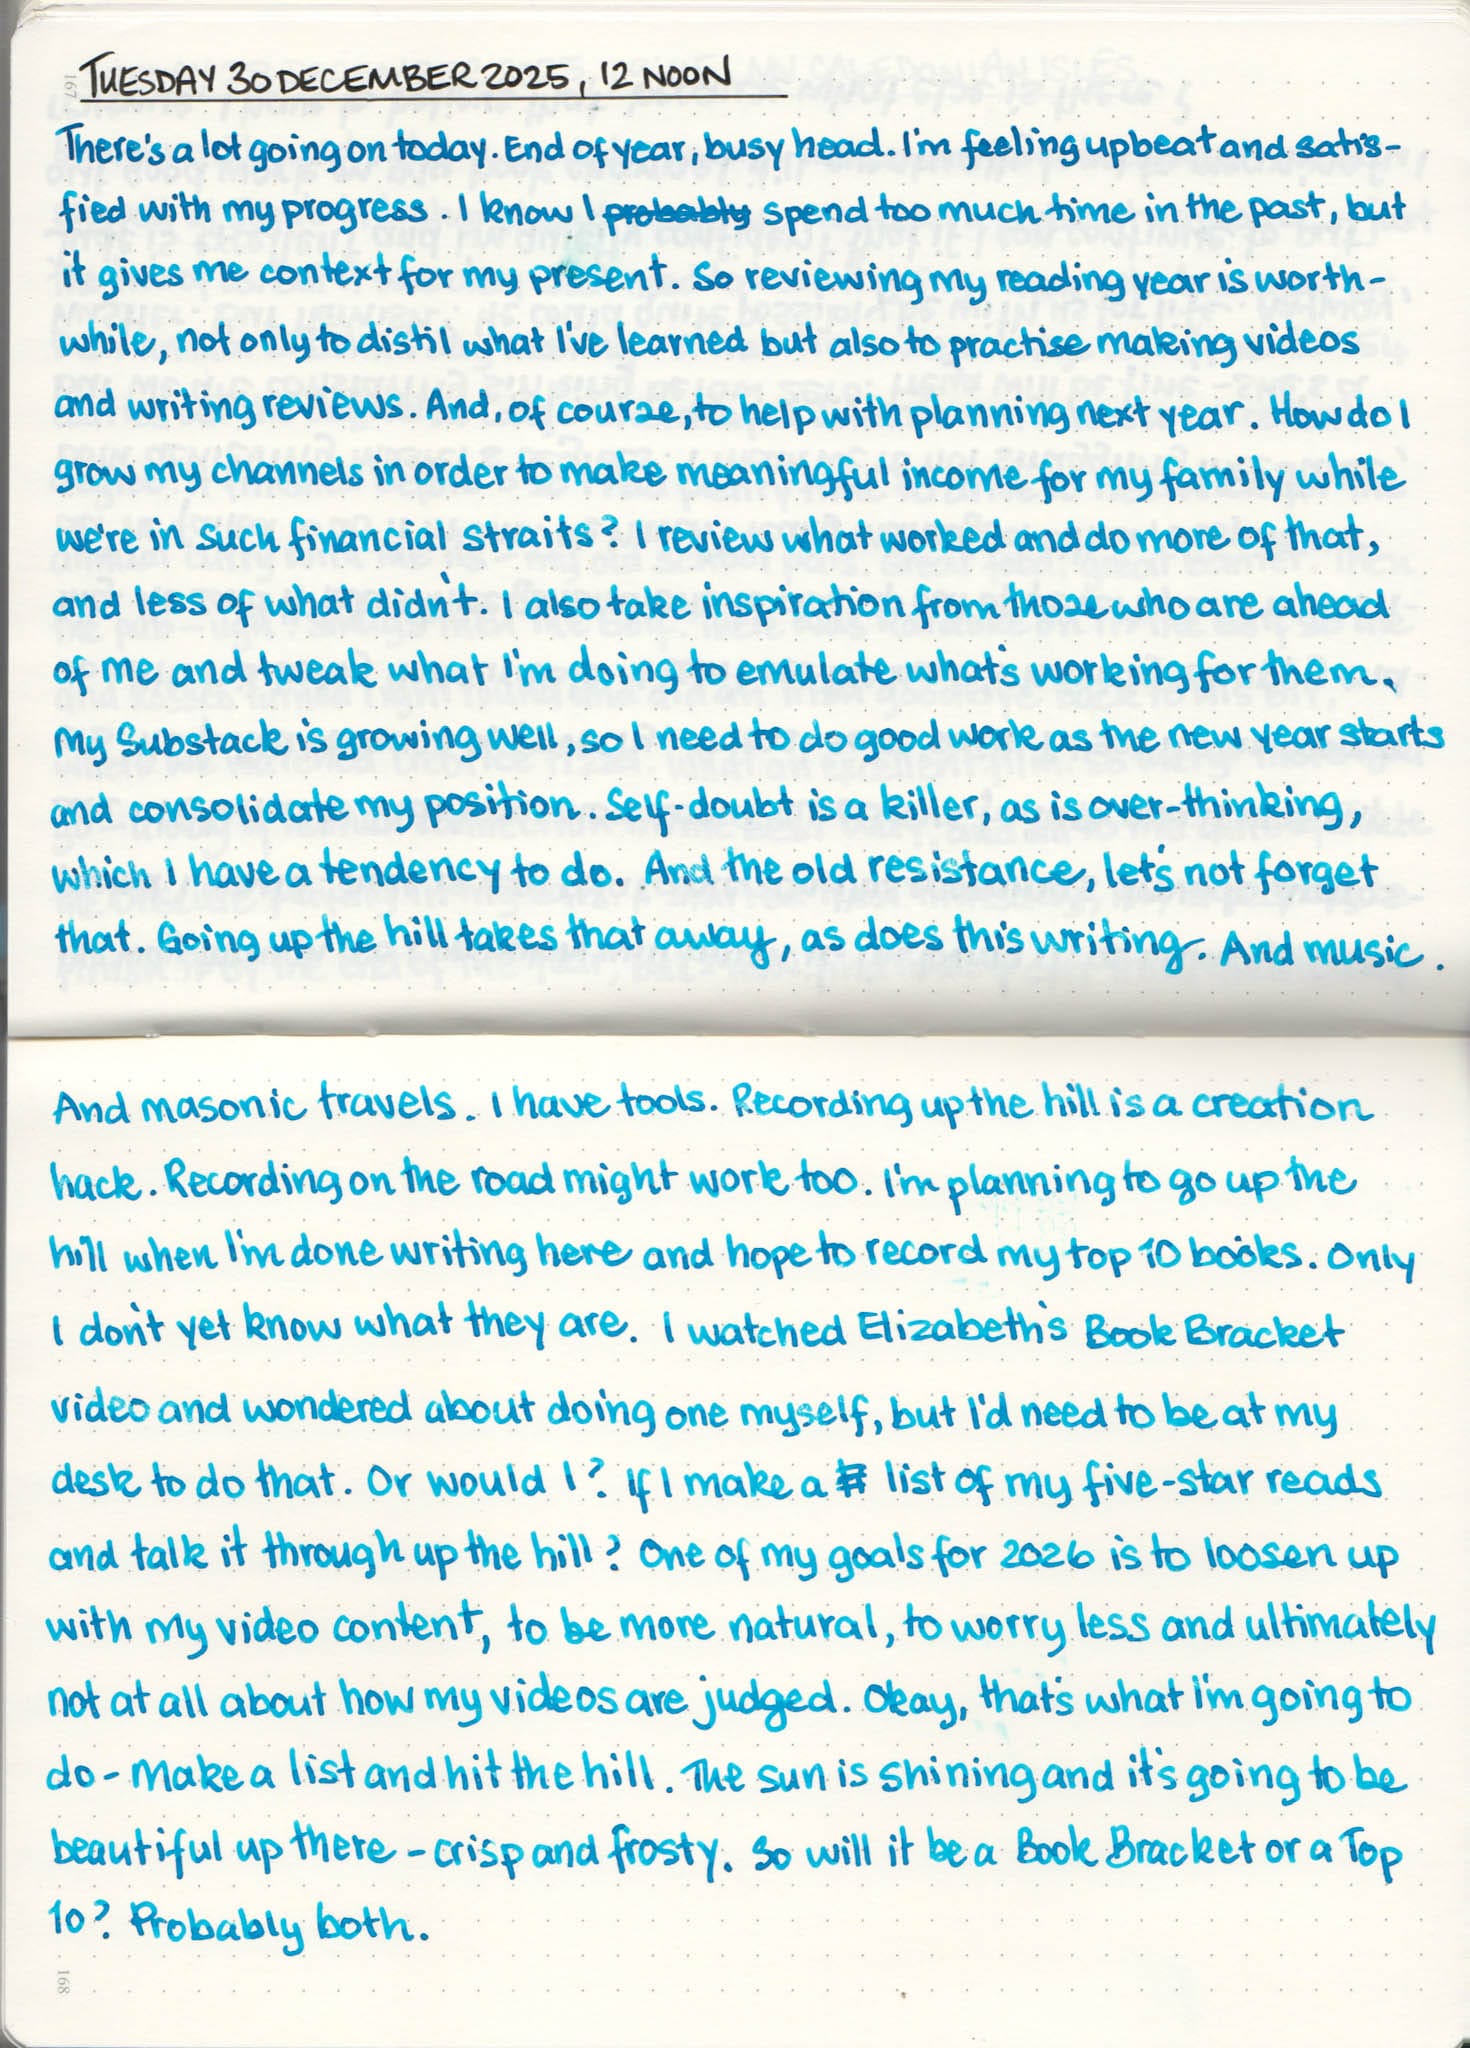 TUESDAY 30 DECEMBER 2025, 12 NOON
There's a lot going on today. End of year, busy head. I'm feeling upbeat and satis-
fied with my progress. I know I probably spend too much time in the past, but
it gives me context for my present. So reviewing my reading year is worth-
while, not only to distil what I've learned but also to practise making videos
and writing reviews. And, of course, to help with planning next year. How do I
grow my channels in order to make meaningful income for my family while
we're in such financial straits? I review what worked and do more of that,
and less of what didn't. I also take inspiration from those who are ahead
of me and tweak what I'm doing to emulate what's working for them.
My Substack is growing well, so I need to do good work as the new year starts
and consolidate my position. Self-doubt is a killer, as is over-thinking,
which I have a tendency to do. And the old resistance, let's not forget
that. Going up the hill takes that away, as does this writing. And music.
And masonic travels. I have tools. Recording up the hill is a creation
hack. Recording on the road might work too. I'm planning to go up the
hill when I'm done writing here and hope to record my top 10 books. Only
I don't yet know what they are. I watched Elizabeth's Book Bracket
video and wondered about doing one myself, but I'd need to be at my
desk to do that. Or would I? If I make a list of my five-star reads
and talk it through up the hill? One of my goals for 2026 is to loosen up
with my video content, to be more natural, to worry less and ultimately
not at all about how my videos are judged. Okay, that's what I'm going to
do - make a list and hit the hill. The sun is shining and it's going to be
beautiful up there - crisp and frosty. So will it be a Book Bracket or a Top
10? Probably both.
167
168